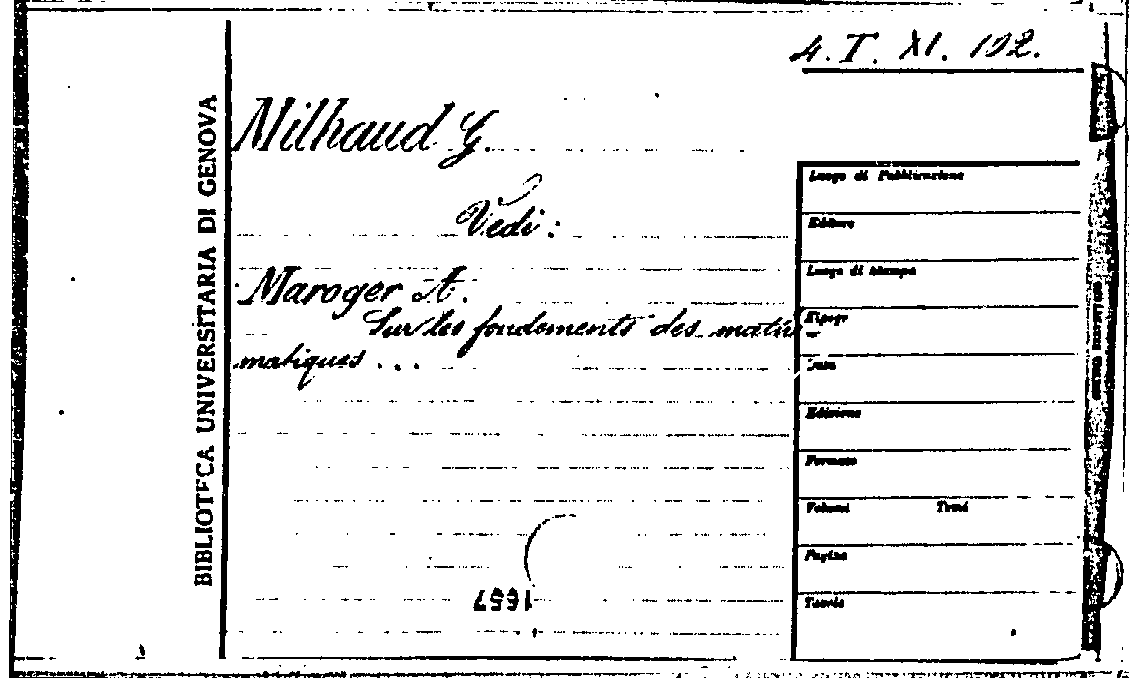 4. T. XI. 192.
BIBLIOTECA UNIVERSITARIA DI GENOVA
Milhaud G.
Vedi:
Maroger A.
Sur les fondements des mathé-
matiques ...
1657
Luogo di Pubblicazione
Editore
Luogo di stampa
Tipogr
Data
Edizione
Formato
Volumi Tomi
Pagine
Tavole